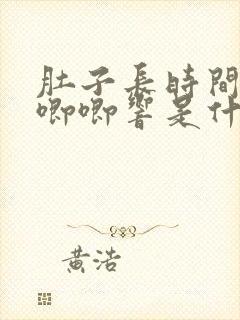 肚子長時間
唧唧響是什
黃浩